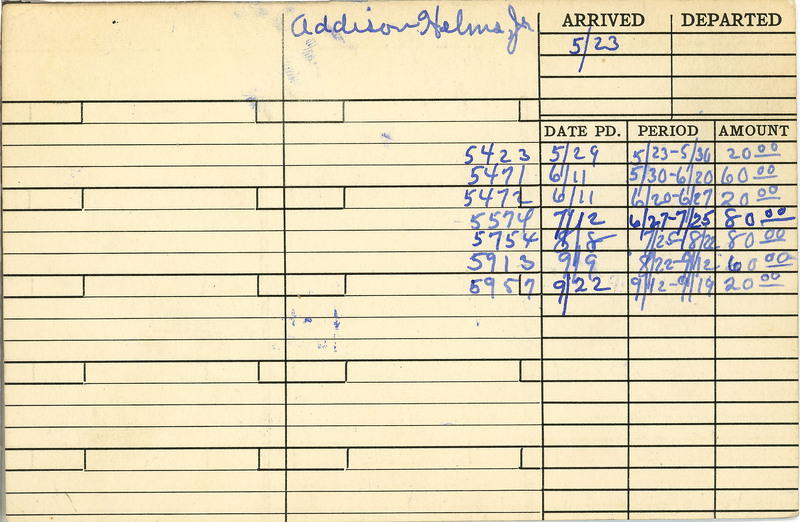 Addison Helms, Jr ARRIVED DEPARTED
5/23
DATE PD. PERIOD AMOUNT
5423 5/29 5/23-5/30 20.00
5471 6/11 5/30-6/20 60.00
5472 6/11 6/20-6/27 20.00
5574 7/12 6/27-7/25 80.00
5754 8/8 7/25-8/22 80.00
5913 9/9 8/22-9/12 60.00
5957 9/22 9/12-9/19 20.00